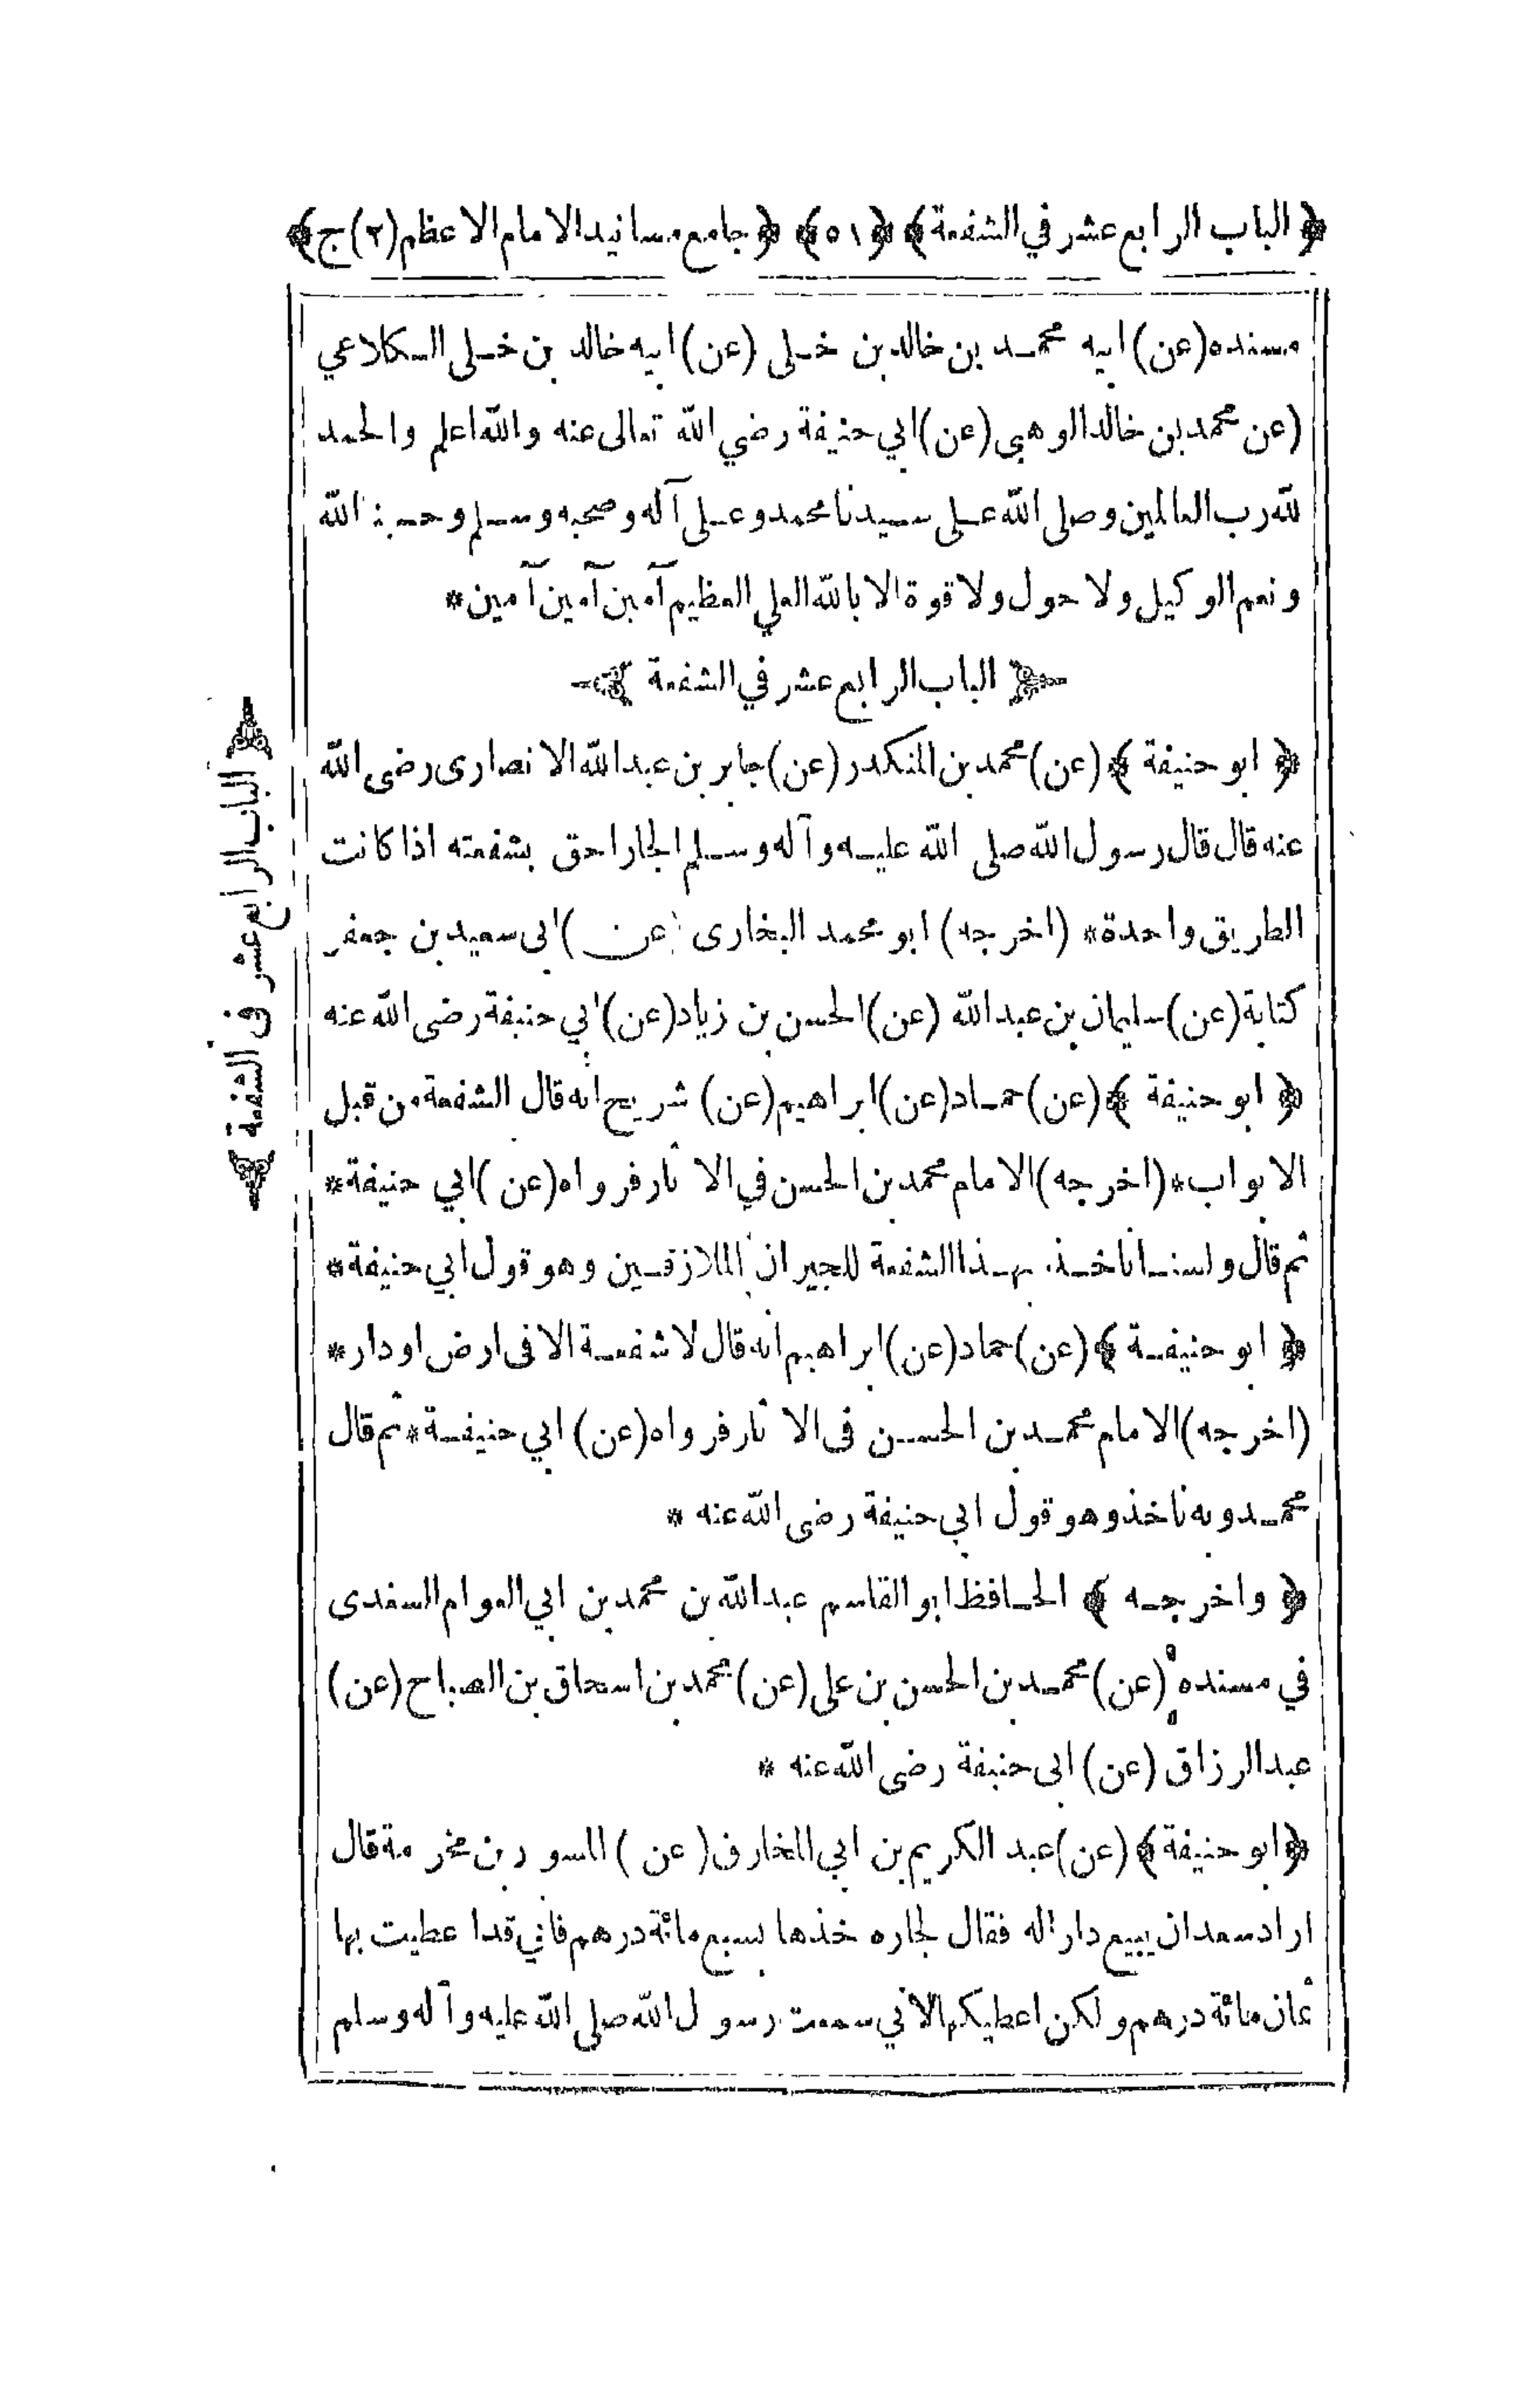 ﴿ الباب الرابع عشر في الشفعة﴾ ﴿٥١﴾ ﴿جامع مسانيد الامام الاعظم(٢)ج﴾
مسنده(عن)ابيه محمد بن خالد بن خلى (عن)ابيه خالد بن خلى الكلاعي
(عن محمد بن خالد الوهبى(عن)ابي حنيفة رضي الله تعالى عنه والله اعلم والحمد
لله رب العالمين وصلى الله على سيدنا محمد وعلى آله وصحبه وسلم وحسبنا الله
ونعم الوكيل ولا حول ولا قوة الا بالله العلي العظيم آمين آمين آمين*
الباب الرابع عشر في الشفعة
﴿ ابو حنيفة ﴾(عن)محمد بن المنكدر(عن)جابر بن عبد الله الانصارى رضى الله
عنه قال قال رسول الله صلى الله عليه وآله وسلم الجار احق بشفعته اذا كانت
الطريق واحدة* (اخرجه) ابو محمد البخارى (عن)ابى سعيد بن جعفر
كتابة(عن)سليمان بن عبد الله (عن)الحسن بن زياد(عن)ابي حنيفة رضى الله عنه
﴿ ابو حنيفة ﴾(عن)حماد(عن)ابراهيم(عن) شريح انه قال الشفعة من قبل
الابواب*(اخرجه)الامام محمد بن الحسن في الآثار فرواه(عن)ابي حنيفة*
ثم قال ولسنا ناخذ بهذا الشفعة للجيران الملازقين وهو قول ابي حنيفة*
﴿ ابو حنيفة ﴾(عن)حماد(عن)ابراهيم انه قال لا شفعة الا فى ارض او دار*
(اخرجه)الامام محمد بن الحسن فى الآثار فرواه(عن) ابي حنيفة*ثم قال
محمد وبه ناخذ وهو قول ابي حنيفة رضى الله عنه *
﴿ واخرجه ﴾ الحافظ ابو القاسم عبد الله بن محمد بن ابي العوام السغدى
في مسنده (عن)محمد بن الحسن بن على(عن)محمد بن اسحاق بن الصباح(عن)
عبد الرزاق(عن)ابى حنيفة رضى الله عنه *
﴿ابو حنيفة﴾(عن)عبد الكريم بن ابي المخارق(عن)المسور بن مخرمة قال
اراد سعد ان يبيع دارا له فقال لجاره خذها بسبع مائة درهم فاني قد اعطيت بها
ثمان مائة درهم ولكن اعطيكها لاني سمعت رسول الله صلى الله عليه وآله وسلم
﴿ الباب الرابع عشر فى الشفعة ﴾